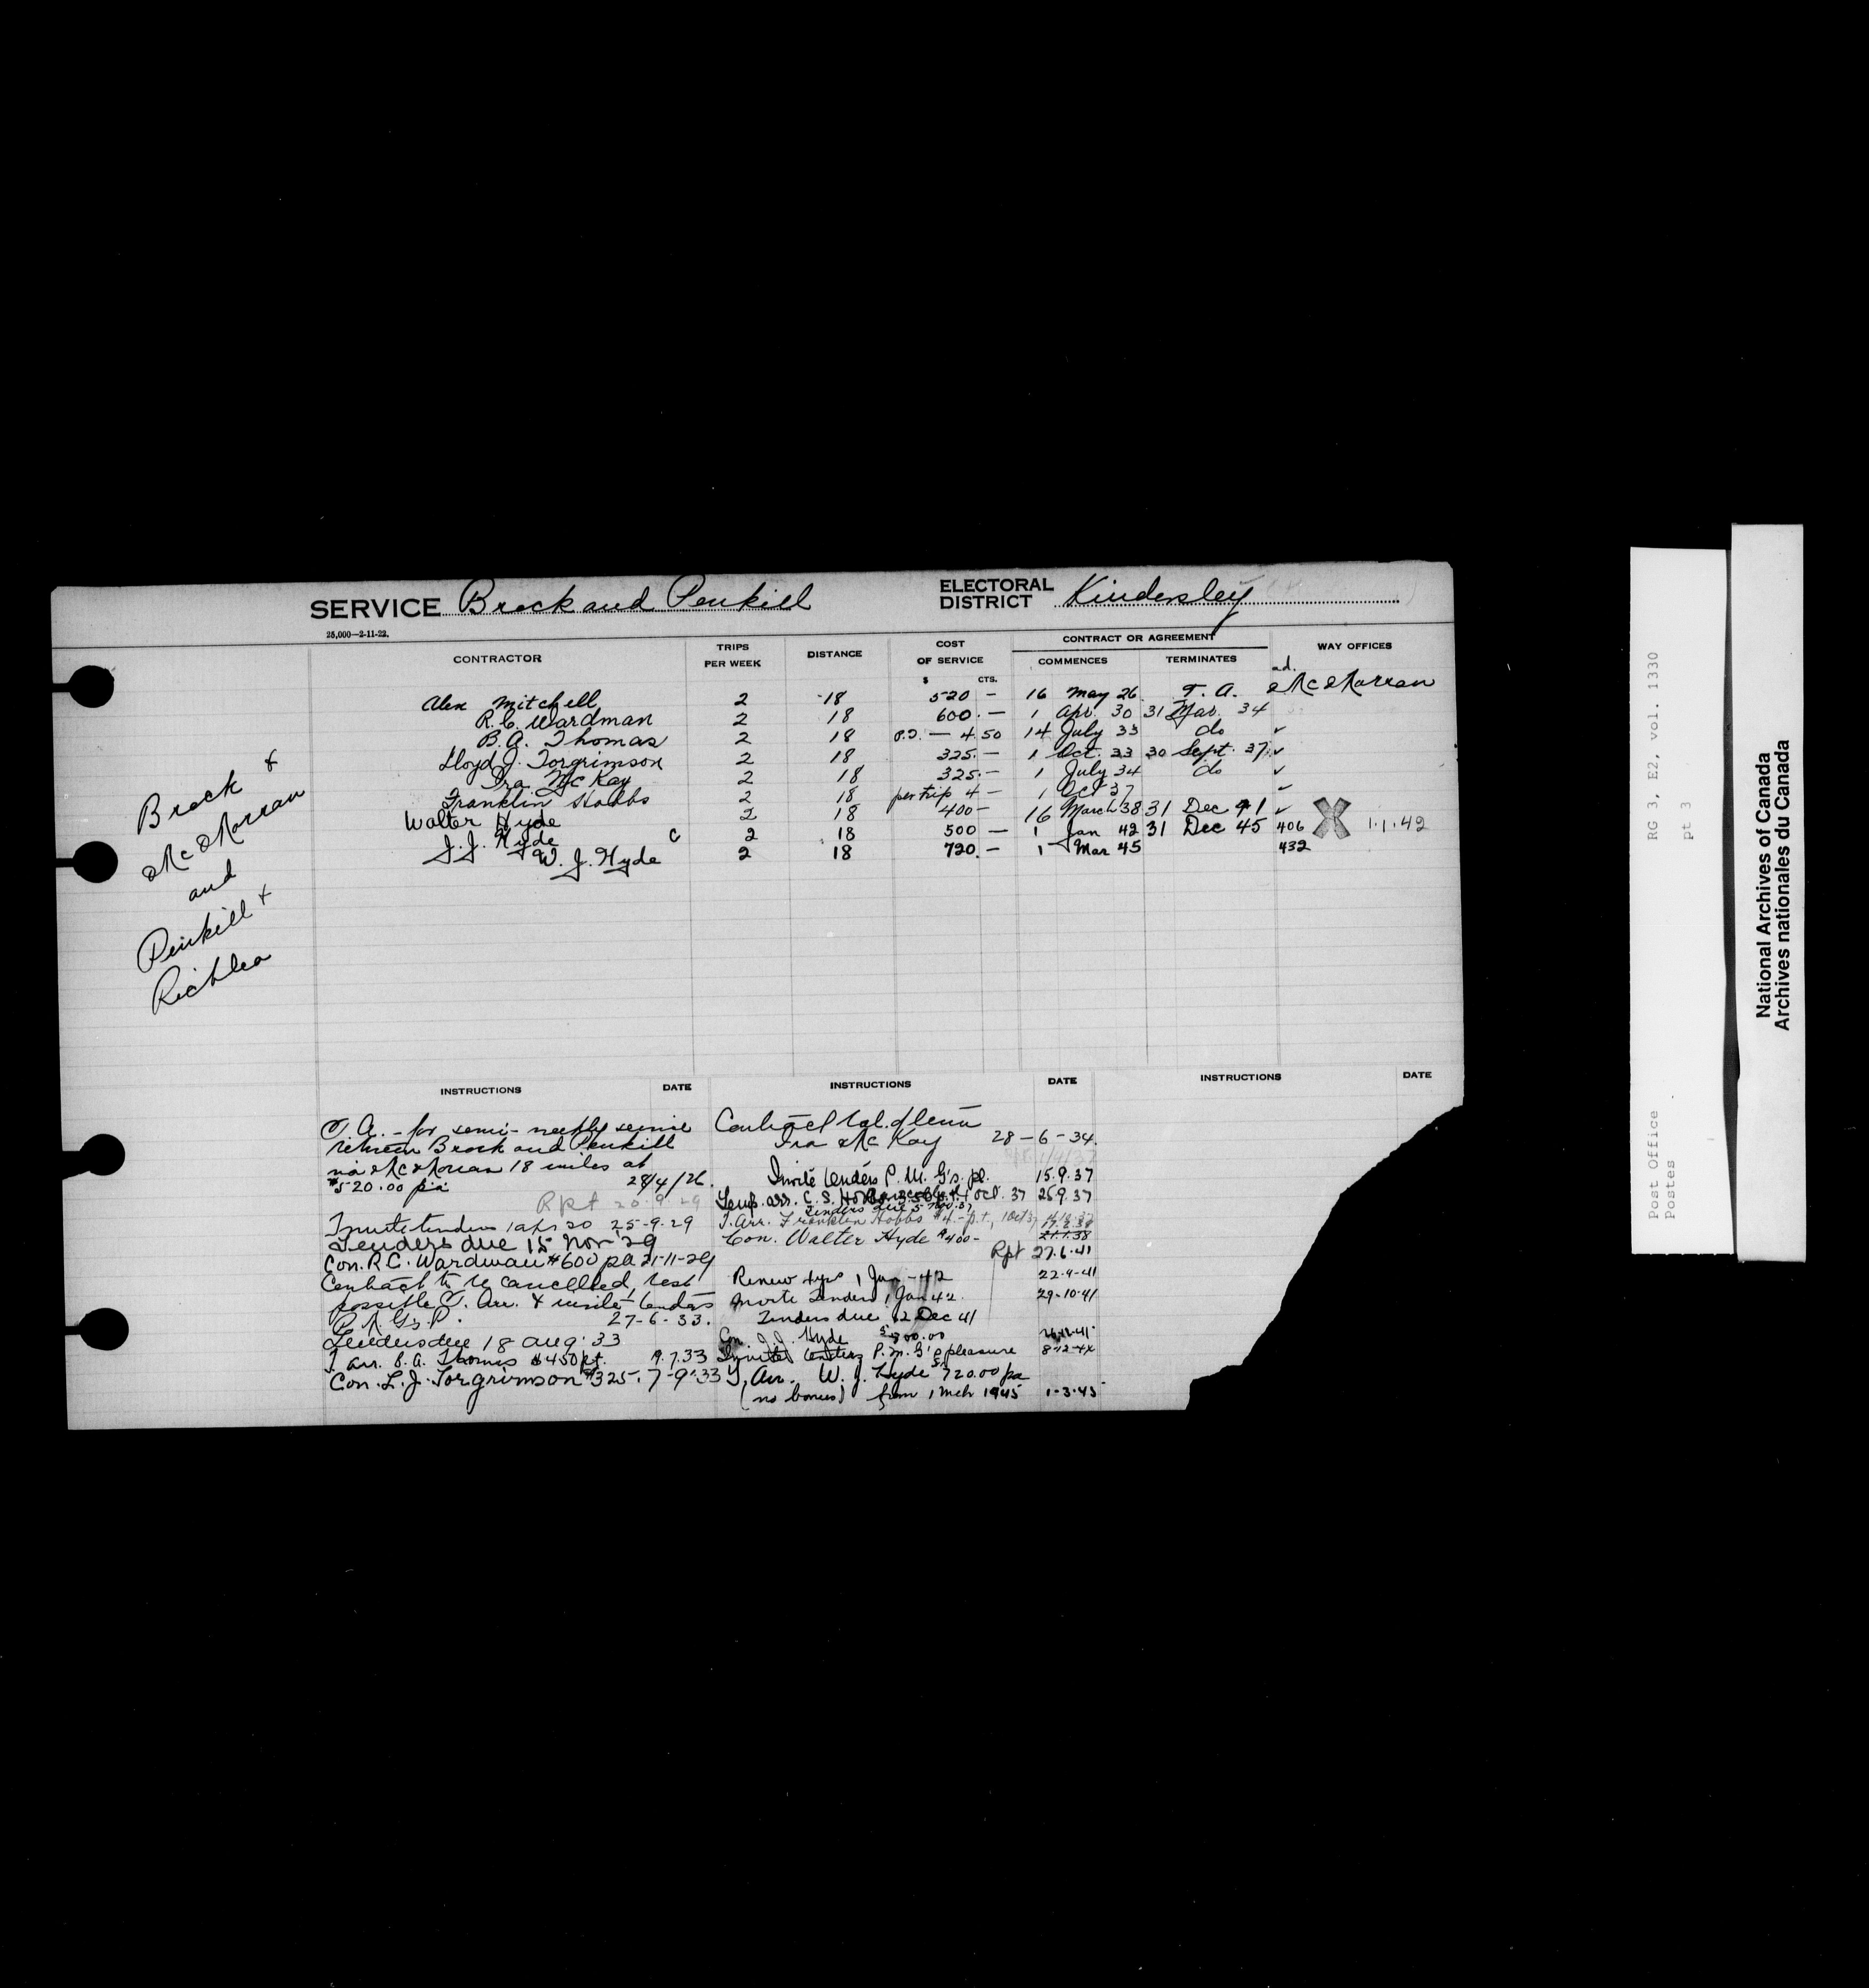 SERVICE Brock and Penkill ELECTORAL DISTRICT Kindersley
25,000—2-11-22.
CONTRACTOR TRIPS PER WEEK DISTANCE COST OF SERVICE $ CTS. CONTRACT OR AGREEMENT COMMENCES TERMINATES WAY OFFICES
ad.
Alex Mitchell 2 18 520 — 16 May 26 T. A. McMorran
R. C. Wardman 2 18 600. — 1 Apr. 30 31 Mar. 34
B. A. Thomas 2 18 p.t. — 4.50 14 July 33 do ✓
Lloyd J. Torgrimson 2 18 325. — 1 Oct. 33 30 Sept. 37 ✓
Ira McKay 2 18 325. — 1 July 34 do ✓
Franklin Hobbs 2 18 per trip 4 — 1 Oct 37 ✓
Walter Hyde 2 18 400 — 16 March 38 31 Dec 41 ✓
J. J. Hyde C 2 18 500 — 1 Jan 42 31 Dec 45 406 X 1.1.42
W. J. Hyde 2 18 720. — 1 Mar 45 432
Brock &
McMorran
and
Penkill &
Richlea
INSTRUCTIONS DATE INSTRUCTIONS DATE INSTRUCTIONS DATE
T. A. - for semi-weekly service
between Brock and Penkill
via McMorran 18 miles at
$520.00 pa 28/4/26.
Rpt 20-9-29
Invite tenders 1 apr 30 25-9-29
Tenders due 15 Nov 29
Con. R. C. Wardman $600 pa 21-11-29
Contract to be cancelled, best
possible T. Arr. & invite tenders
P.M.G's P. 27-6-33.
Tenders due 18 Aug. 33
T. arr. B. A. Thomas $4.50 pt. 19.7.33
Con. L. J. Torgrimson $325. 7-9-33
Contract
Ira McKay 28-6-34.
Invite tenders P. M. G's pl. 15.9.37
Temp. arr. C. S. 1 Oct. 37 25.9.37
Tenders due 5 Nov. 37
T. Arr. Franklin Hobbs $4.- p.t., 1 Oct 37
Con. Walter Hyde $400- 21.1.38
Rpt 27.6.41
Renew 4 yrs 1 Jan -42 22-9-41
Invite Tenders 1 Jan 42. 29-10-41
Tenders due 12 Dec 41
Con. J. J. Hyde $500.00
Invite tenders P. M. G's pleasure
T. Arr. W. J. Hyde $720.00 pa
(no bonus) from 1 Mch 1945 1-3-45
RG 3, E2, vol. 1330
pt 3
Post Office
Postes
National Archives of Canada
Archives nationales du Canada